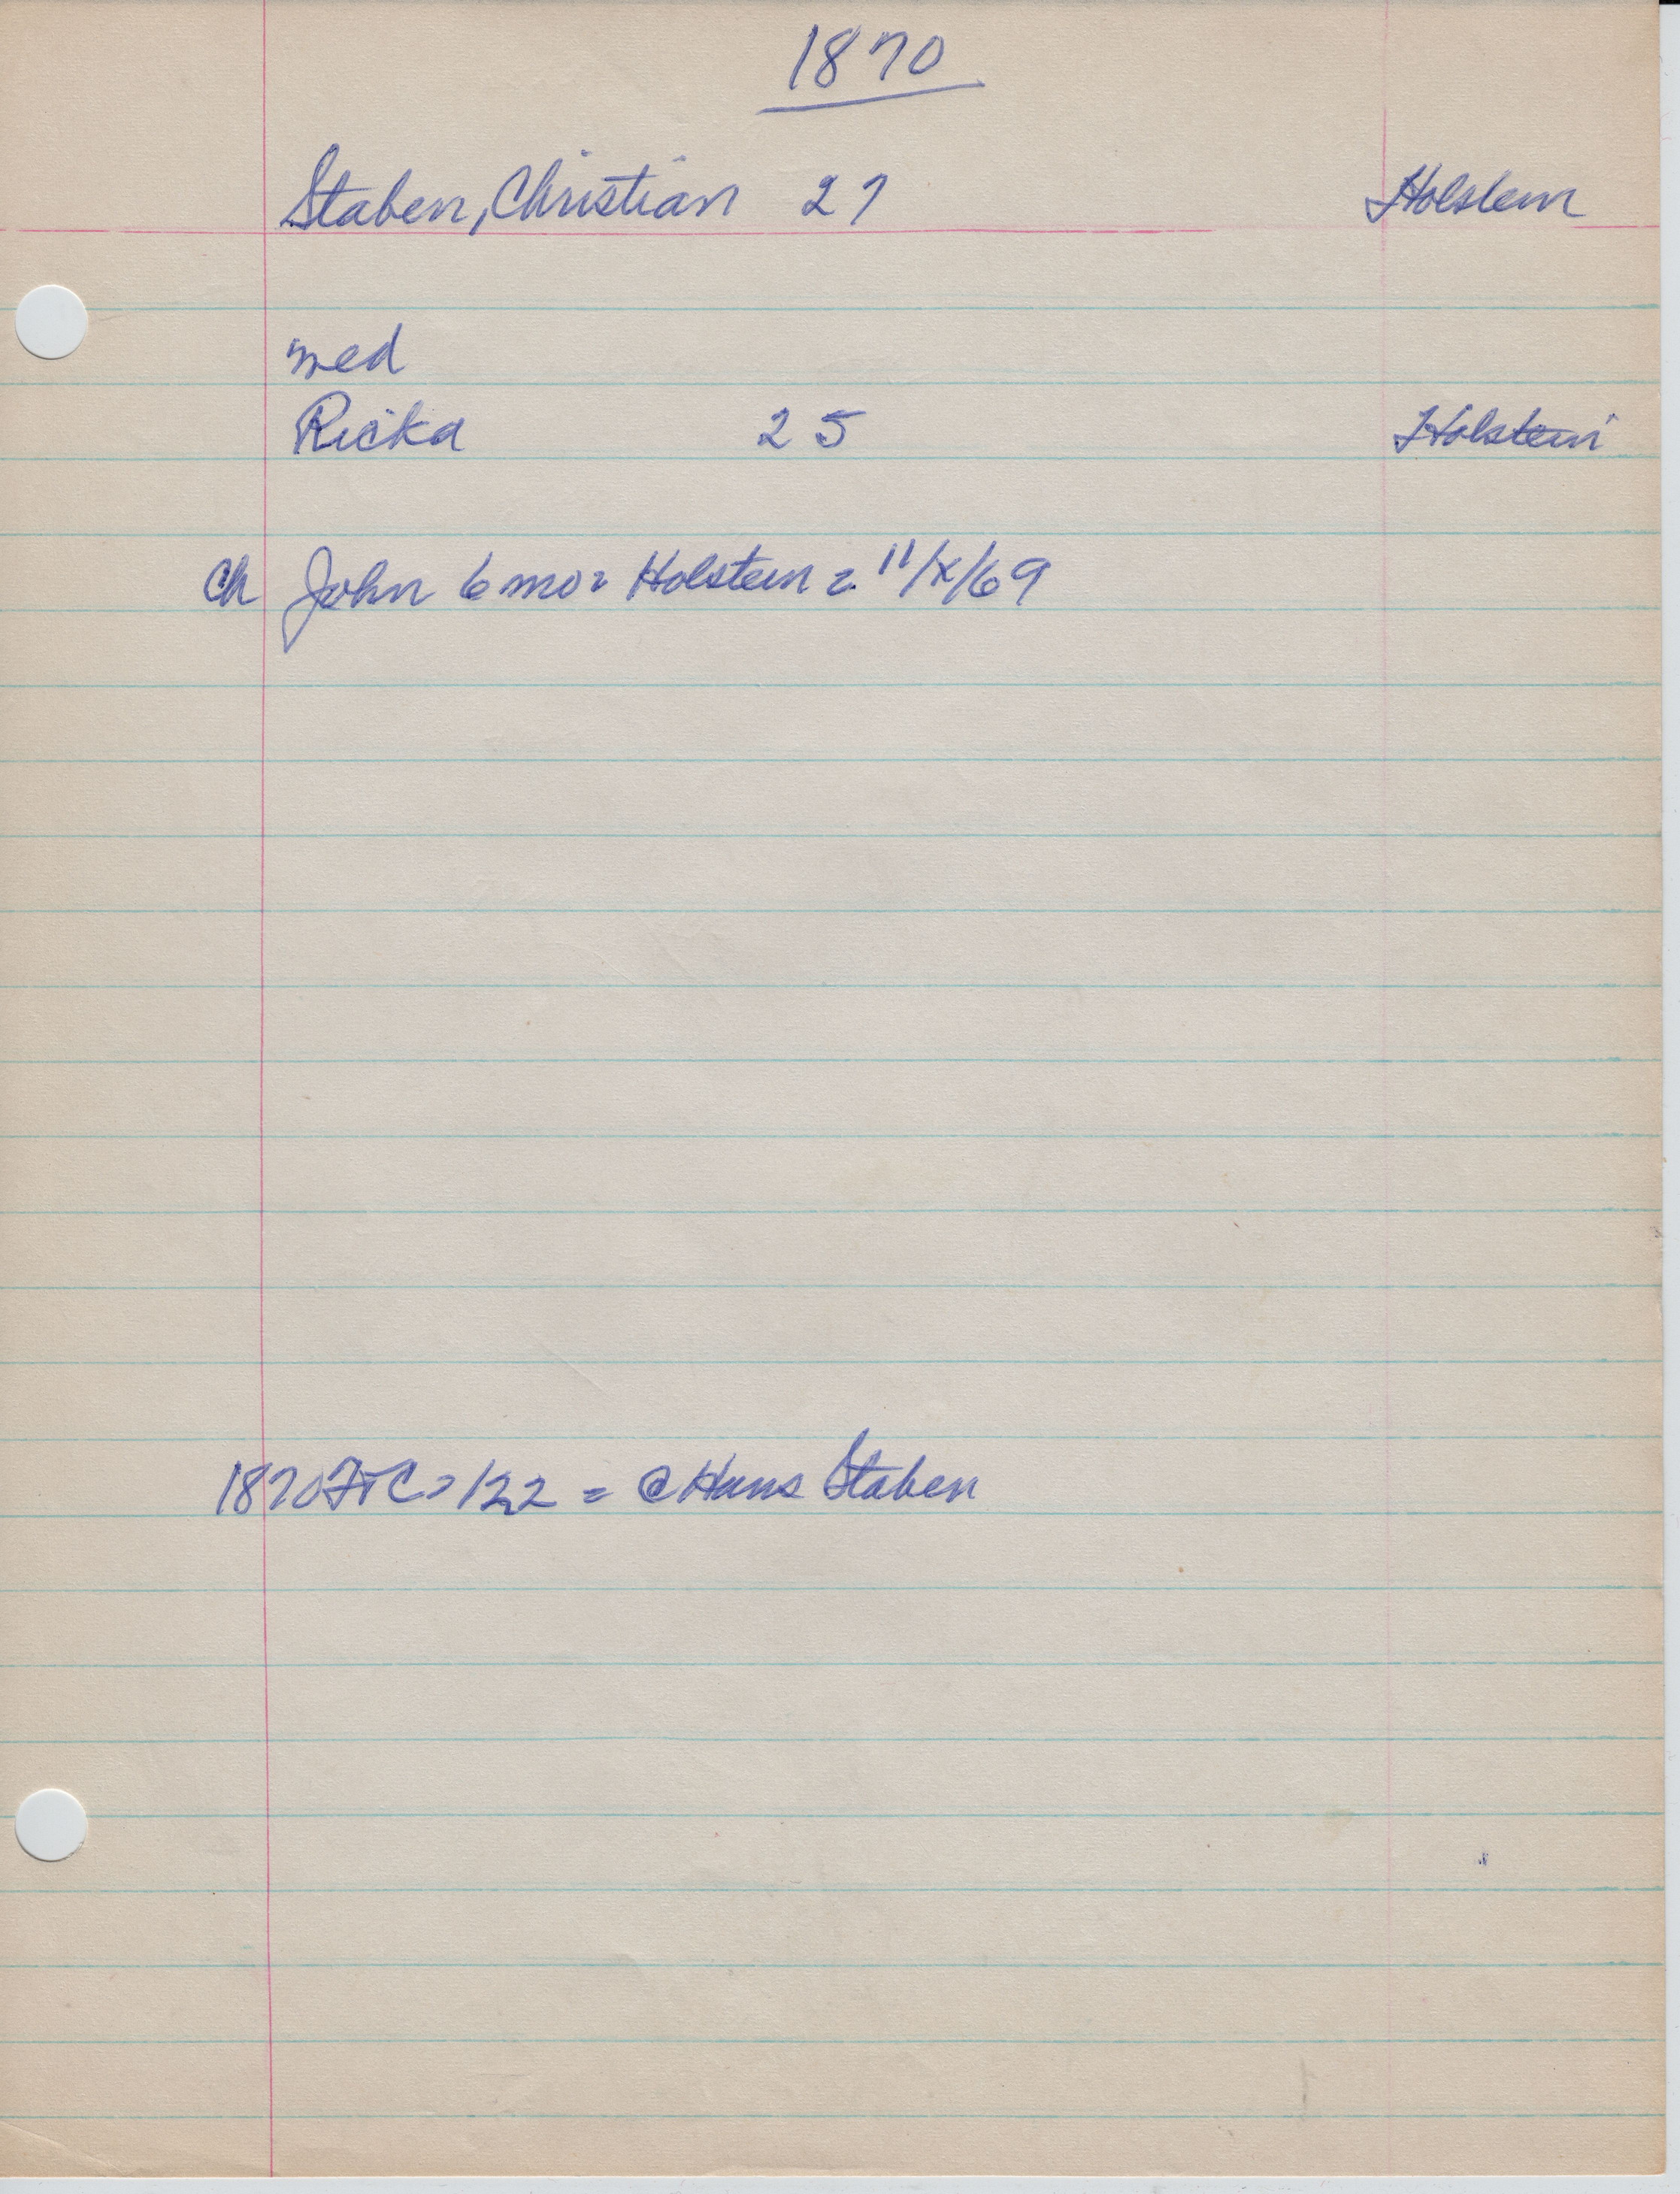 1870
Staben, Christian 27 Holstein
med
Ricka 25 Holstein
Ch John 6 mo = Holstein = 11/X/69
1870 FTC = 122 = @ Hans Staben